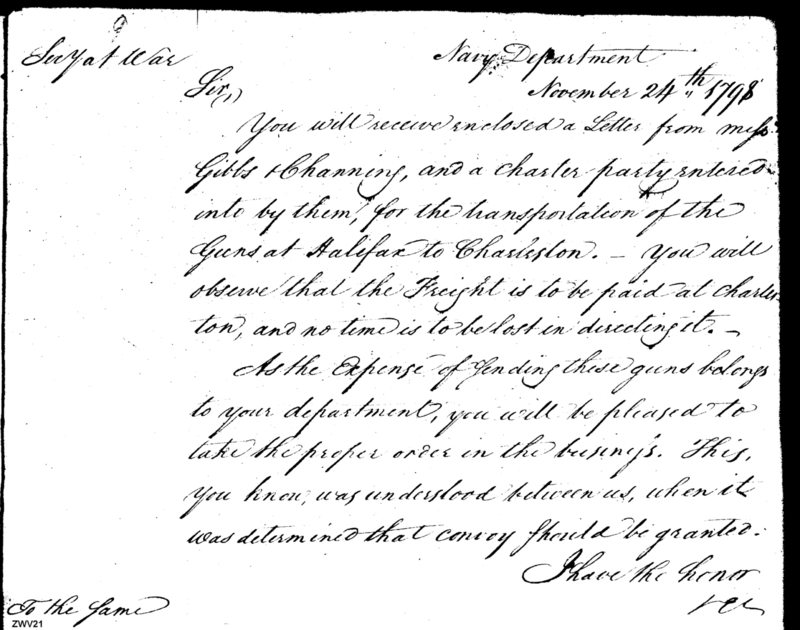 Secy at War
Navy Department
November 24th 1798
Sir,
You will receive enclosed a Letter from messrs
Gibbs & Channing, and a charter party entered
into by them, for the transportation of the
Guns at Halifax to Charleston. – You will
observe that the Freight is to be paid at Charles
ton, and no time is to be lost in directing it. –
As the Expense of sending these guns belongs
to your department, you will be pleased to
take the proper order in the business. This,
you know, was understood between us, when it
was determined that convoy should be granted.
I have the honor
&c
To the same
ZWV21